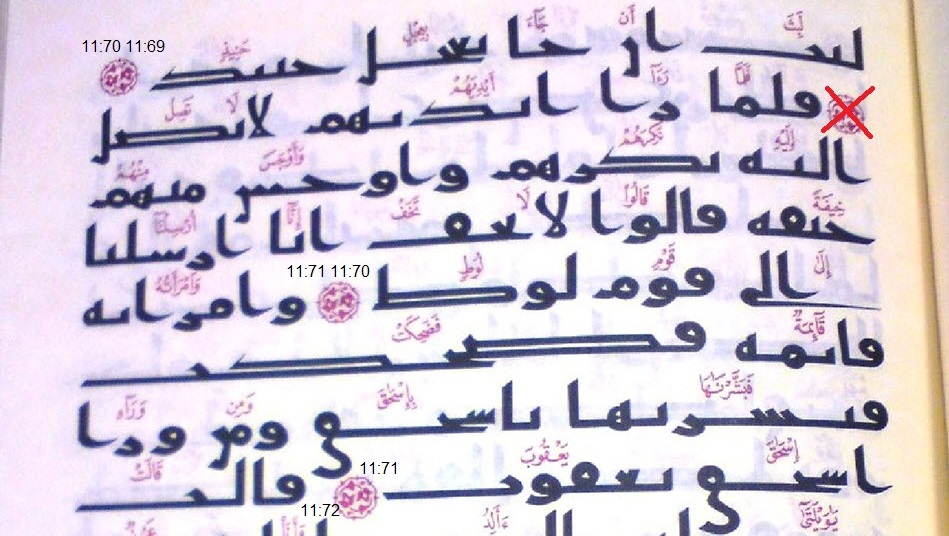 لَبِثَ أَن جَآءَ بِعِجْلٍ حَنِيذٍ
لبث ان جا بعجل حنيذ 11:70 11:69
فَلَمَّا رَءَآ أَيْدِيَهُمْ لَا تَصِلُ
فلما را ايديهم لا تصل
إِلَيْهِ نَكِرَهُمْ وَأَوْجَسَ مِنْهُمْ
اليه نكرهم واوجس منهم
خِيفَةً قَالُوا لَا تَخَفْ إِنَّا أُرْسِلْنَا
خيفه قالوا لا تخف انا ارسلنا
إِلَىٰ قَوْمِ لُوطٍ 11:71 11:70 وَامْرَأَتُهُ
الى قوم لوط وامراته
قَآئِمَةٌ فَضَحِكَتْ
قايمه فضحكت
فَبَشَّرْنَٰهَا بِإِسْحَٰقَ وَمِن وَرَآءِ
فبشرنها باسحق ومن ورا
إِسْحَٰقَ يَعْقُوبَ 11:71 قَالَتْ
اسحق يعقوب 11:72 قالت
يَٰوَيْلَتَىٰ ءَأَلِدُ وَأَنَا